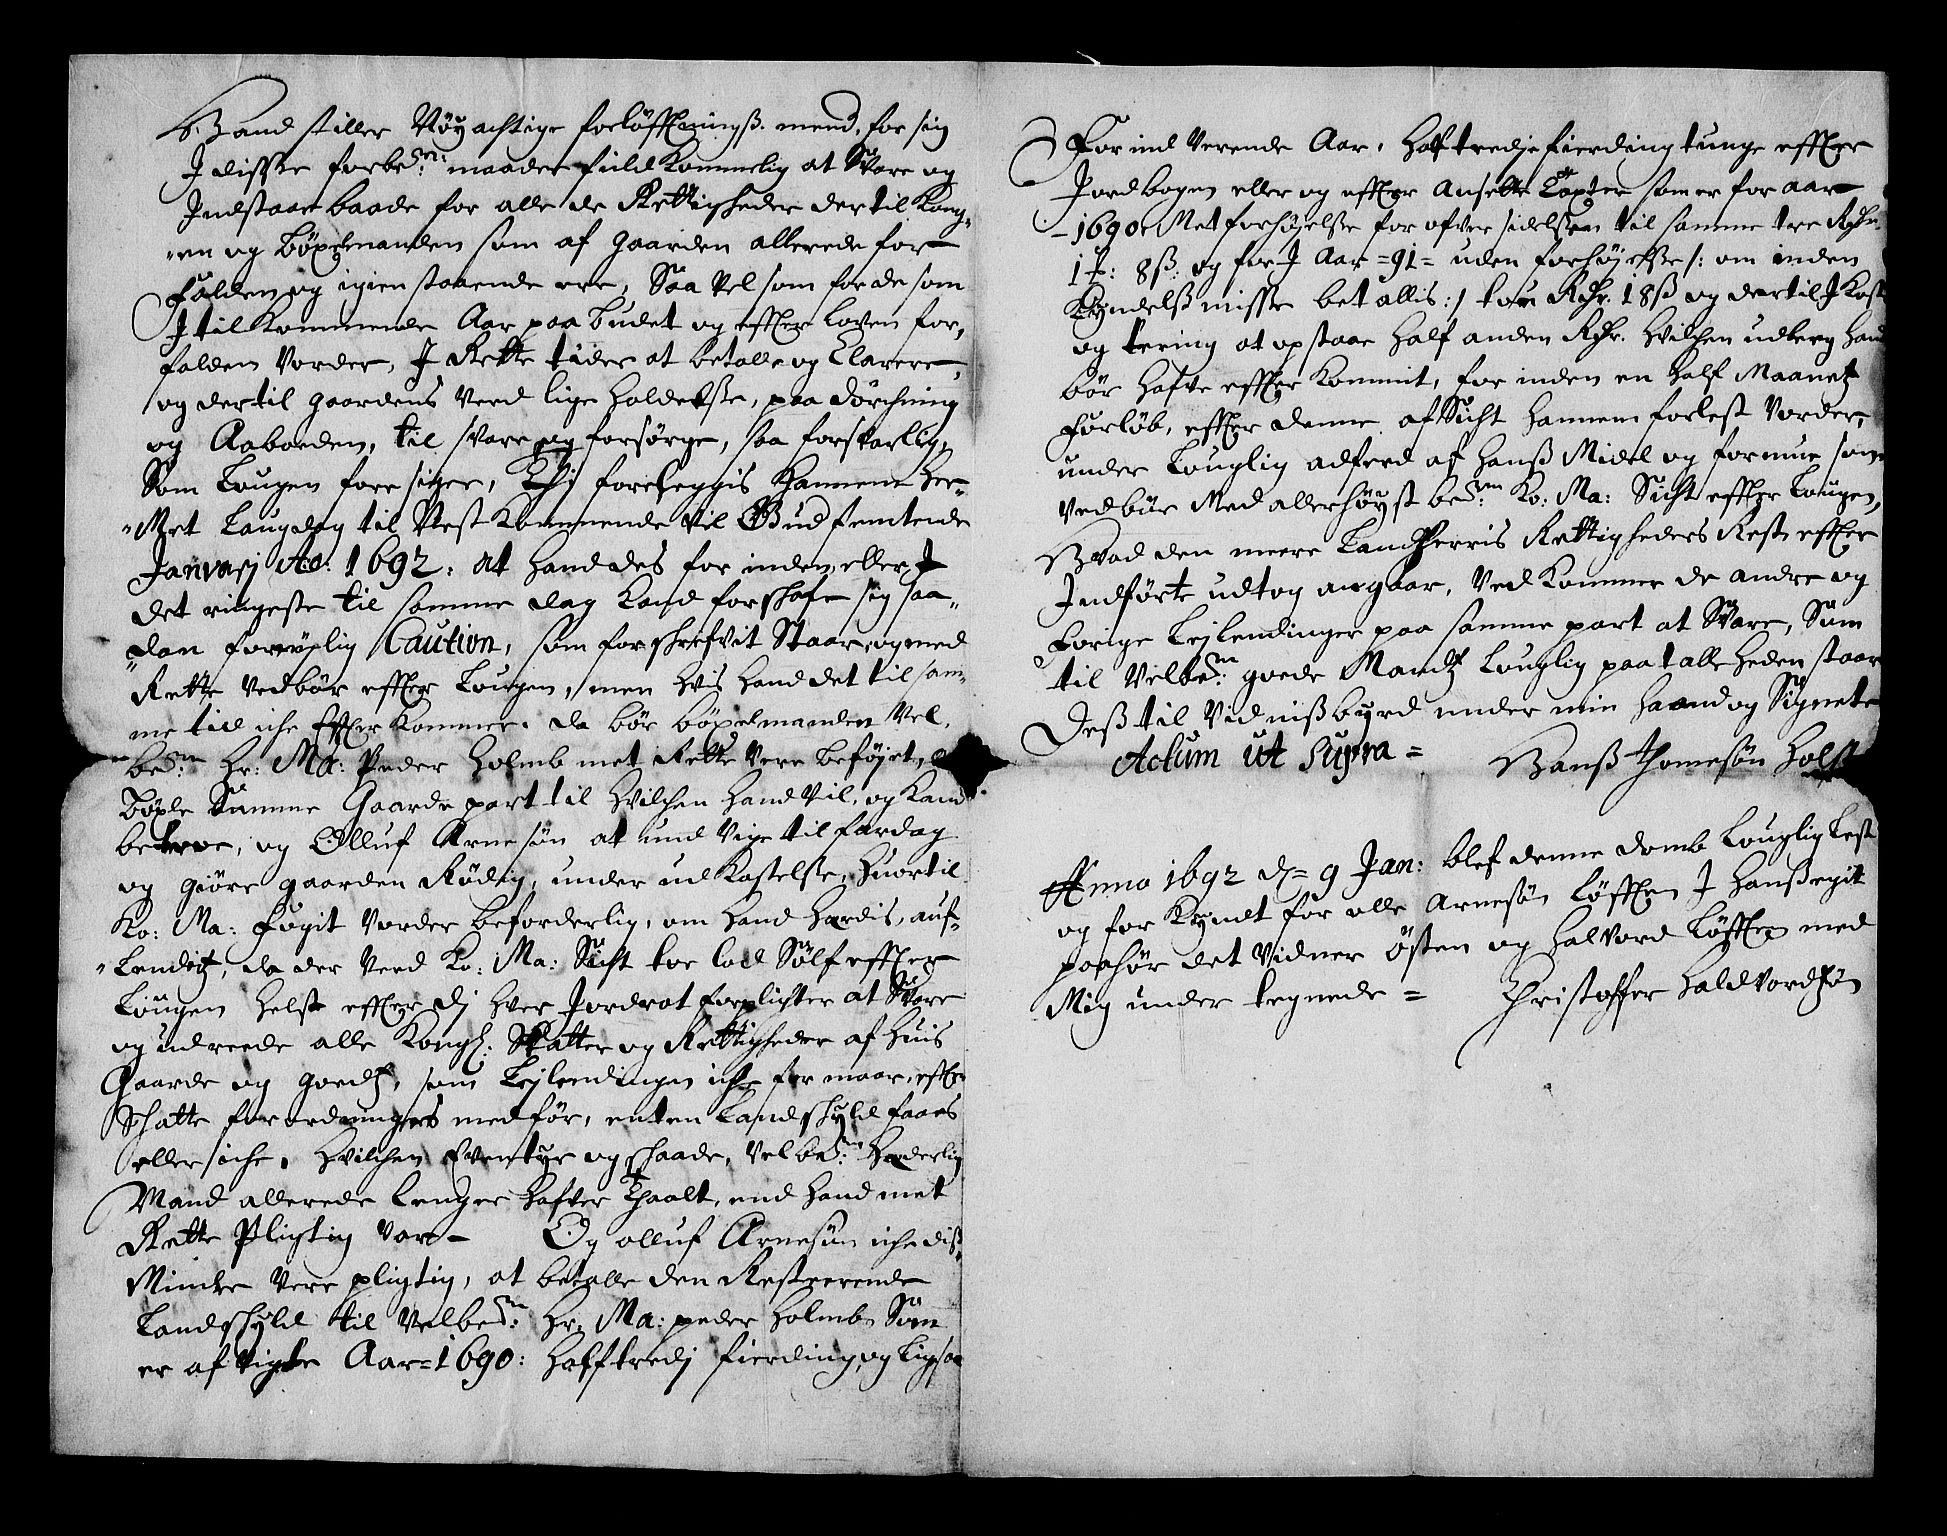 Hand stiller Nøyachtige forløfftnings mend, for sig
J disse forbe:ᵐ maader fuldkommelig at Svare og
Jndstaae baade for alle de Rettigheder der til Kong¬
en og böxelmanden som af gaarden allerede for
falden og igien staaende ere, Saa vel som for de som
J tilkommende Aar paabudet og effter loven for¬
falden vorder, J Rette tider at betalle og Clarere,
og dertil gaardens Verd lige holdelsse, paa dörchning
og Aaboeden, til svare og forsörge, saa forsvarlig,
Som Lougen foresiger, Thj foreleggis hannem her¬
Met Laugdag til Nestkommende vil Gud femtende
Januarj Ao: 1692: at hand des for inden, eller J
det ringeste til samme dag kand forskafe sig saa¬
dan forøyelig Caution, som forskrefvit Staar, og med
Rette vedbör effter Lougen, men hvis hand det til sam¬
me tid iche effterkommer. da bör böxelmanden Vel¬
be:ᵐ Hr: Ma: Peder Holmb met Rette vere beföyet,
böxle Samme Gaarde part til hvilchen hand vil, og kand
bekome, og Olluf Arnesön at und Vige til fardag
og giöre gaarden Rödig, under udkastelse, huortil
Ko: Ma: Fogit vorder beforderlig, om hand herdis, auf¬
Lendig, da der Ved Ko: Ma: Sicht toe lod Sölf effter
Lougen helst effter dj hver Jordrot forplichter at Svare
og udreede alle Kongl: Skatter og Rettigheder af huis
Gaarde og goeds, som Lejlendingen iche formaar, effter
Schatte forordningers medför, enten Landschyld faaes
eller iche, hvilchen Eventyr og schaade, velbe:ᵐ Hæderlig
Mand allerede lenger hafver thaalt, end hand met
Rette Pligtig var – Og olluf Arnesön iche dis
Mindre vere pligtig, at betalle den Resterende
Landschyld til velbe:ᵐ Hr: Ma: peder Holmb Som
er af vigte Aar=1690: halftredj fierding, og ligesaa
For ind verende Aar, halftredje fierding tunge effter
Jordbogen eller og effter ansette Taxter som er for aar
1690 Met forhøyelsse for ofver sidelssen til samme tre Rdr
1 ꝑ: 8ß: og for J Aar =91= uden forhöyelsse /: om inden
Kyndelss misse betallis :/ toe Rdr: 18ß og dertil J Kost
og tering at opstaae half anden Rdr. hvilchen udlæg hand
bör hafve effterkommit, for inden en half Maanetz
forlöb, effter denne afSicht hannem forlest vorder,
under Louglig adferd af hanss Midel og formue som
vedbör Med allerhöyst be:ᵐ Ko: Ma: Sicht effter Lougen,
Hvad den meere Landherris Rettigheders Rest effter
Jndförte udtog angaar, vedkommer de andre og
Forige Lejlendinger paa samme part at Svare, Som
til Velbe:ᵐ goede Mands Louglig paatalle heden staar
Dess til vidnissbyrd under min haand og Signete
Actum ut Supra = Hanss thomesön Holst
Anno 1692 d= 9 Jan: blef denne domb Louglig Lest
og forkyndt for olle Arnesön Løfften J hanss egit
paahör det vidner Östen og halvord Løfften med
Mig under tegnede = Christoffer Haldvordsøn